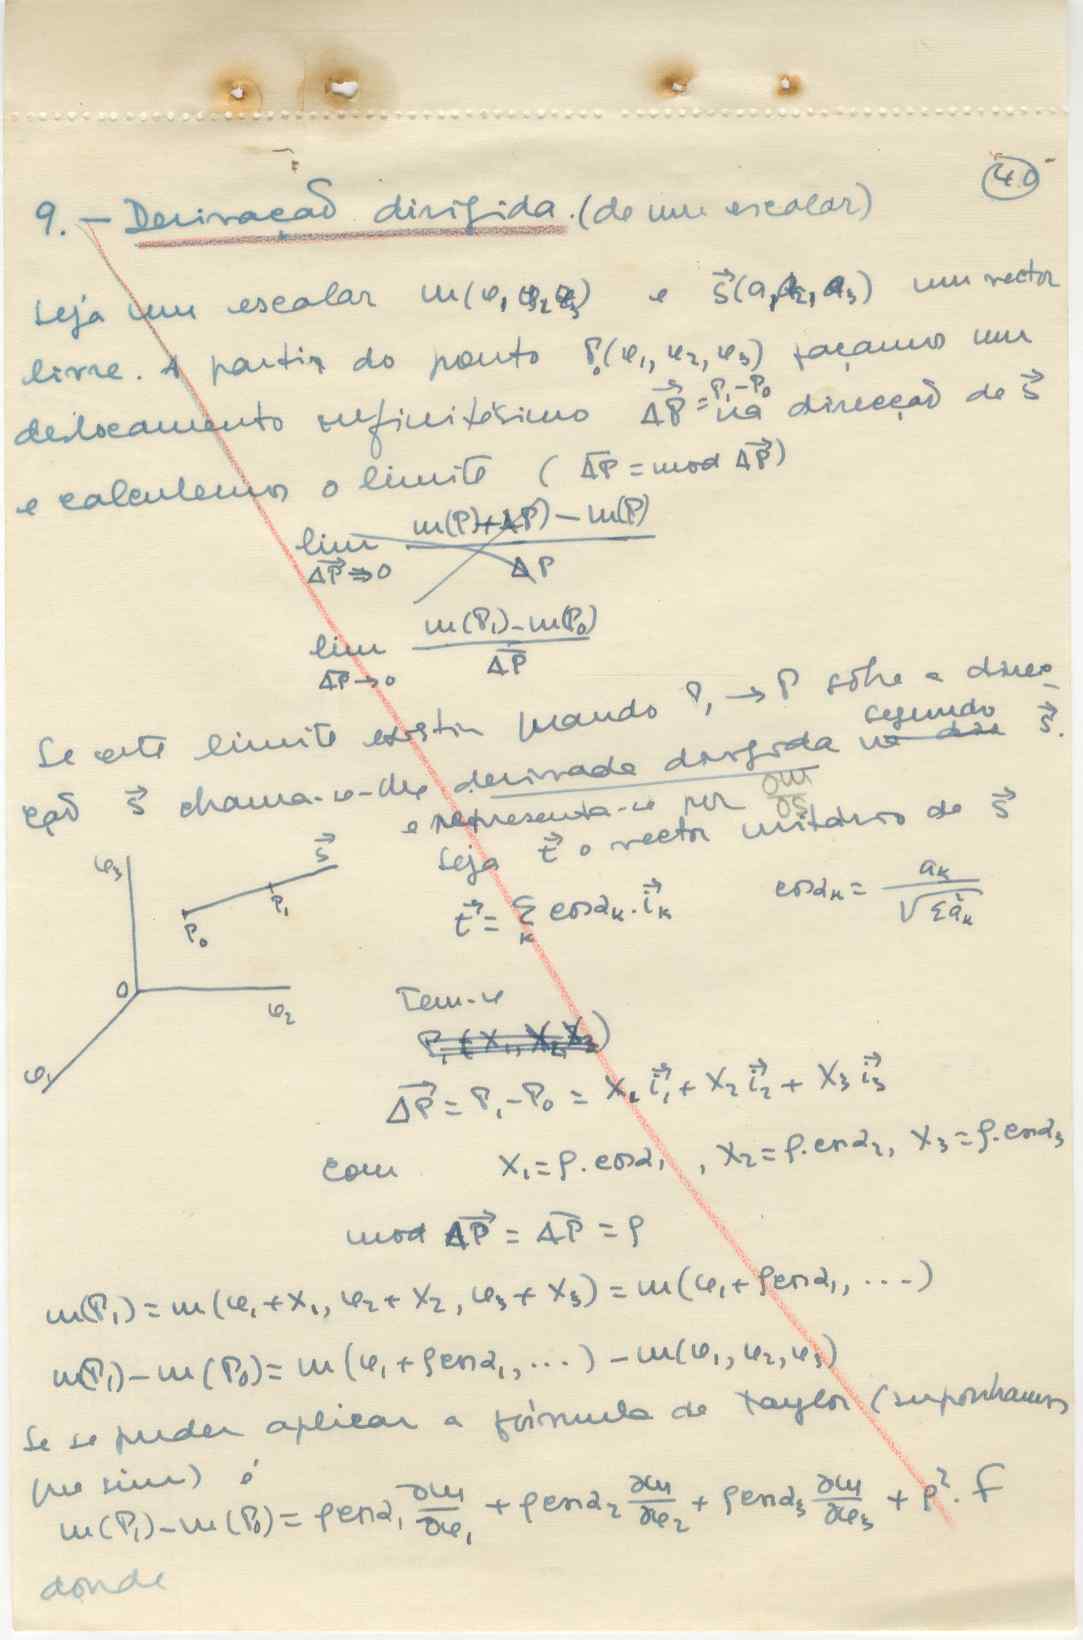 40
9. — Derivação dirigida. (de um escalar)
Seja um escalar m(φ₁ φ₂ φ₃) e s⃗(a₁, a₂, a₃) um vector
livre. A partir do ponto P₀(φ₁, φ₂, φ₃) façamos um
deslocamento infinitésimo ΔP⃗ = P₁-P₀ na direcção de s⃗
e calculemos o limite ( ΔP = mod ΔP⃗ )
lim ΔP⃗→0 (m(P)+ΔP) - m(P) / ΔP
lim ΔP→0 m(P₁)-m(P₀) / ΔP
Se este limite existir quando P₁ → P sôbre a direc-
ção s⃗ chama-se-lhe derivada dirigida na dire segundo s⃗.
e representa-se por ∂m/∂s
Seja t⃗ o vector unitário de s⃗
φ₃ s⃗ P₁ P₀ O φ₂ φ₁
t⃗ = Σ_k cosα_k . i⃗_k cosα_k = a_k / √Σa²_k
Tem-se
P₁(X₁, X₂, X₃)
ΔP⃗ = P₁-P₀ = X₁ i⃗₁ + X₂ i⃗₂ + X₃ i⃗₃
com X₁=ρ.cosα₁ , X₂=ρ.cosα₂, X₃=ρ.cosα₃
mod ΔP⃗ = ΔP = ρ
m(P₁) = m(φ₁+X₁, φ₂+X₂, φ₃+X₃) = m(φ₁+ρcosα₁, ....)
m(P₁)-m(P₀) = m(φ₁+ρcosα₁, ...) - m(φ₁, φ₂, φ₃)
Se se puder aplicar a fórmula de Taylor (suponhamos
que sim) é
m(P₁)-m(P₀) = ρcosα₁ ∂m/∂φ₁ + ρcosα₂ ∂m/∂φ₂ + ρcosα₃ ∂m/∂φ₃ + ρ². F
donde